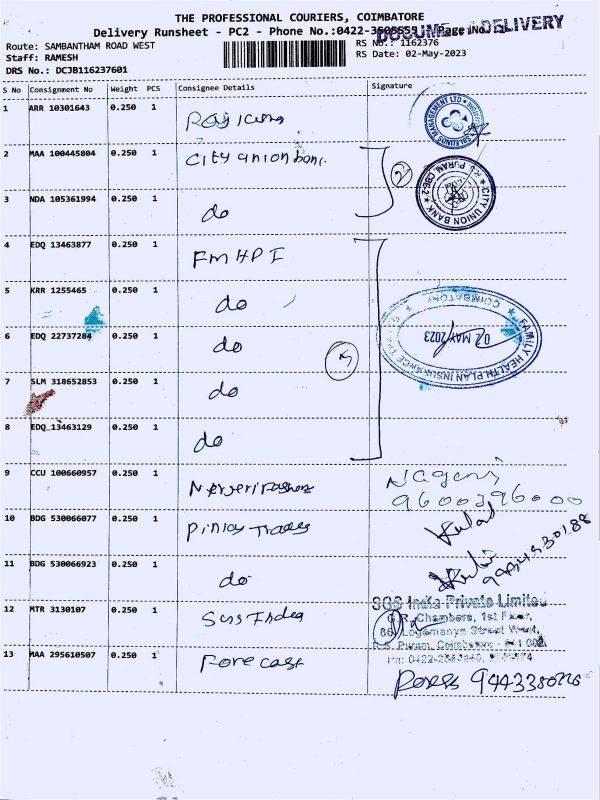 THE PROFESSIONAL COURIERS, COIMBATORE
Delivery Runsheet - PC2 - Phone No.:0422-3505555 Page No.:
DOCUMENT DELIVERY
Route: SAMBANTHAM ROAD WEST
RS No.: 1162376
Staff: RAMESH
RS Date: 02-May-2023
DRS No.: DCJB116237601
S No Consignment No Weight PCS Consignee Details Signature
1 ARR 10301643 0.250 1
2 MAA 100445804 0.250 1 City union
CITY UNION BANK R.S. PURAM, CBE-2
3 NDA 105361994 0.250 1 do
2
4 EDQ 13463877 0.250 1 FMHPI
5 KRR 1255465 0.250 1 do
FAMILY HEALTH PLAN INSURANCE COIMBATORE
02 MAY 2023
6 EDQ 22737284 0.250 1 do
5
7 SLM 318652853 0.250 1 do
8 EDQ 13463129 0.250 1 do
9 CCU 100660957 0.250 1
9600396000
10 BDG 530066077 0.250 1
11 BDG 530066923 0.250 1 do
12 MTR 3130107 0.250 1
SGS India Private Limited
Chambers, 1st Floor,
Logamanya Street West,
R.S. Puram, Coimbatore
13 MAA 295610507 0.250 1 Forecast